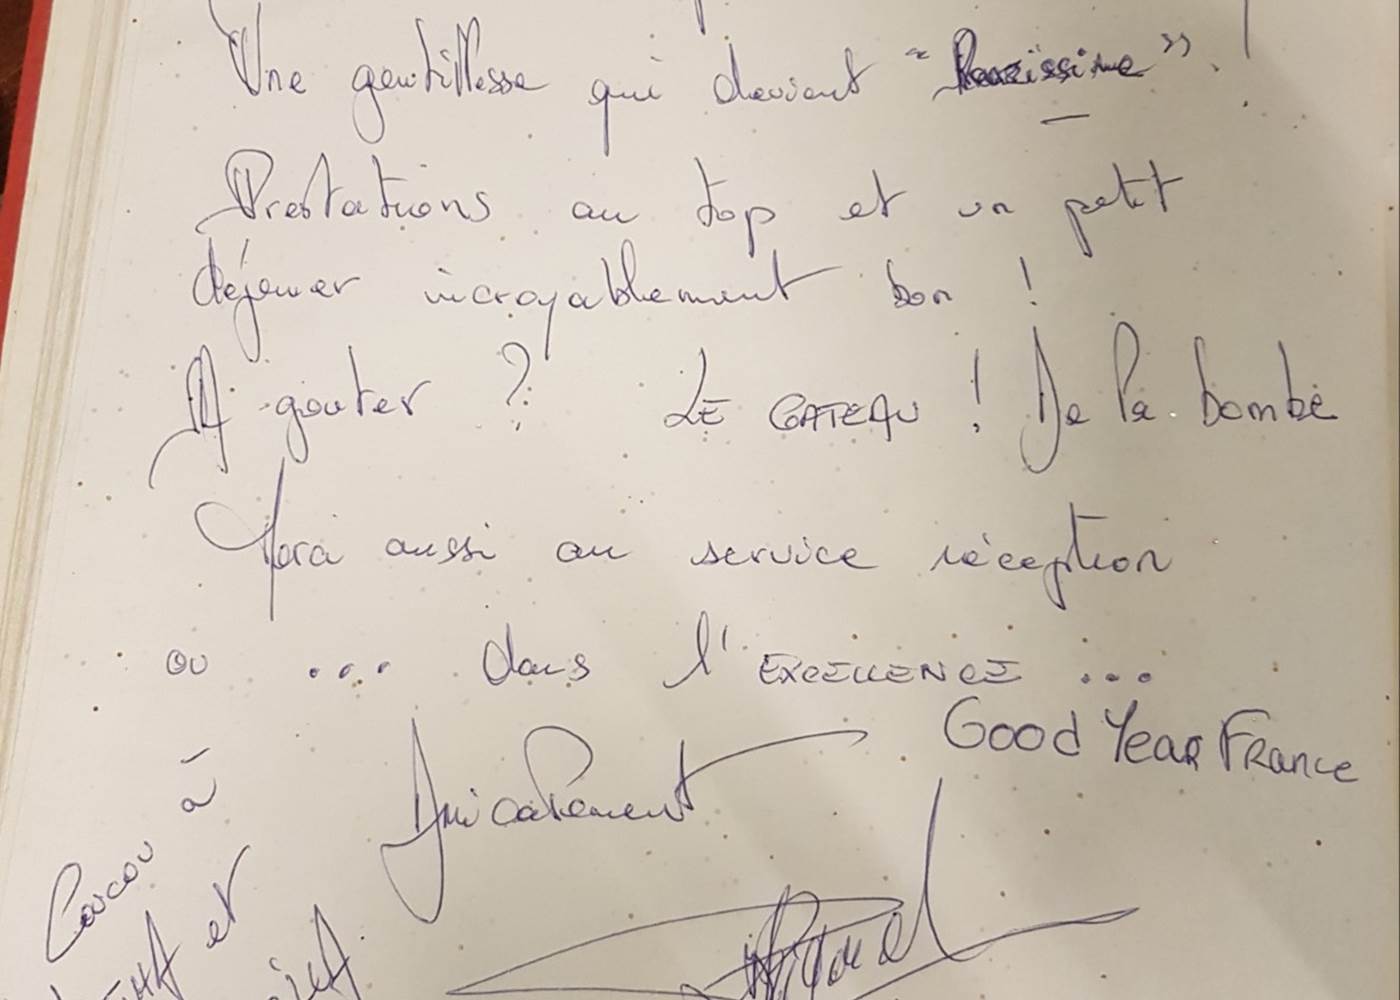 Une gentillesse qui devient " Rarissime " .
Prestations au top et un petit
déjeuner incroyablement bon !
A gouter ? LE GATEAU ! De la bombe
Merci aussi au service réception
ou ... dans l'EXCELLENCE ...
Good Year France
Amicalement
Coucou à
et